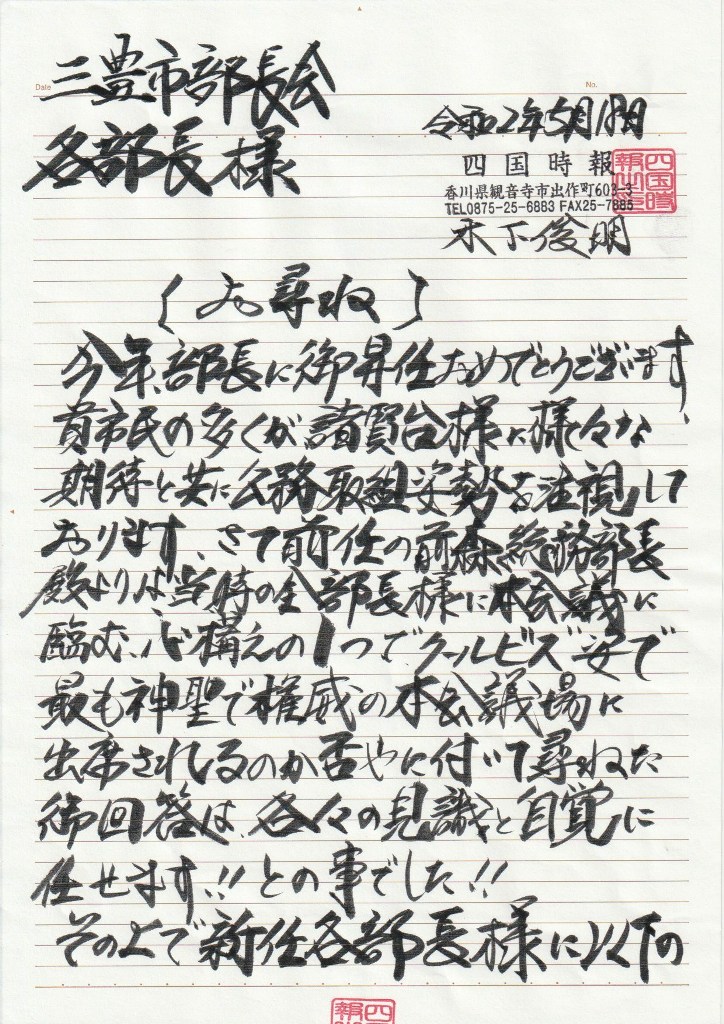 Date
No.
三豊市部長会
各部長様
令和2年5月18日
四国時報
香川県観音寺市出作町603-3
TEL0875-25-6883 FAX25-7885
木下俊明
〔お尋ね〕
今年、部長に御昇任おめでとうございます、
貴市民の多くが、諸賢台様に様々な
期待と共に公務取組姿勢を注視して
おります、さて前任の前森総務部長
殿よりは当時の全部長様に本会議に
臨む、心構えの1つでクールビズ姿で
最も神聖で権威の本会議場に
出席されるのか否やに付いて尋ねた
御回答は、各々の見識と自覚に
任せます!!との事でした!!
その上で新任各部長様に以下の